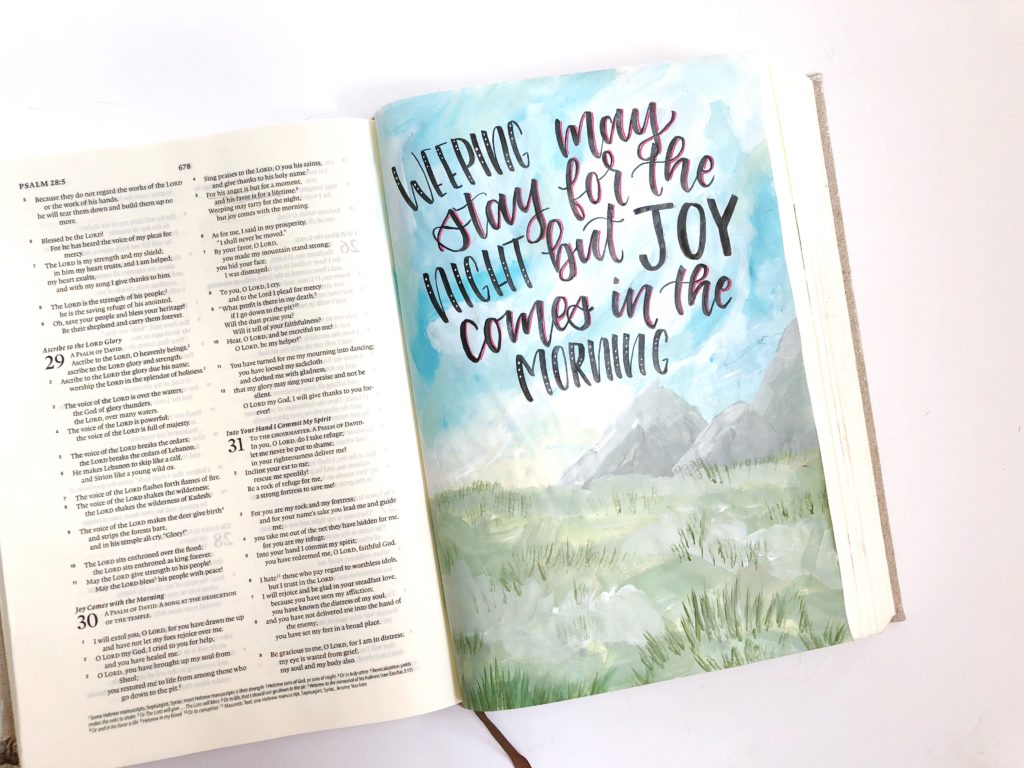 678
PSALM 28:5
5 Because they do not regard the works of the LORD
or the work of his hands,
he will tear them down and build them up no
more.
6 Blessed be the LORD!
For he has heard the voice of my pleas for
mercy.
7 The LORD is my strength and my shield;
in him my heart trusts, and I am helped;
my heart exults,
and with my song I give thanks to him.
8 The LORD is the strength of his people;
he is the saving refuge of his anointed.
9 Oh, save your people and bless your heritage!
Be their shepherd and carry them forever.
Ascribe to the LORD Glory
29 A PSALM OF DAVID.
Ascribe to the LORD, O heavenly beings,
ascribe to the LORD glory and strength.
2 Ascribe to the LORD the glory due his name;
worship the LORD in the splendor of holiness.
3 The voice of the LORD is over the waters;
the God of glory thunders,
the LORD, over many waters.
4 The voice of the LORD is powerful;
the voice of the LORD is full of majesty.
5 The voice of the LORD breaks the cedars;
the LORD breaks the cedars of Lebanon.
6 He makes Lebanon to skip like a calf,
and Sirion like a young wild ox.
7 The voice of the LORD flashes forth flames of fire.
8 The voice of the LORD shakes the wilderness;
the LORD shakes the wilderness of Kadesh.
9 The voice of the LORD makes the deer give birth
and strips the forests bare,
and in his temple all cry, "Glory!"
10 The LORD sits enthroned over the flood;
the LORD sits enthroned as king forever.
11 May the LORD give strength to his people!
May the LORD bless his people with peace!
Joy Comes with the Morning
30 A PSALM OF DAVID. A SONG AT THE DEDICATION
OF THE TEMPLE.
1 I will extol you, O LORD, for you have drawn me up
and have not let my foes rejoice over me.
2 O LORD my God, I cried to you for help,
and you have healed me.
3 O LORD, you have brought up my soul from
Sheol;
you restored me to life from among those who
go down to the pit.
4 Sing praises to the LORD, O you his saints,
and give thanks to his holy name.
5 For his anger is but for a moment,
and his favor is for a lifetime.
Weeping may tarry for the night,
but joy comes with the morning.
6 As for me, I said in my prosperity,
"I shall never be moved."
7 By your favor, O LORD,
you made my mountain stand strong;
you hid your face;
I was dismayed.
8 To you, O LORD, I cry,
and to the Lord I plead for mercy:
9 "What profit is there in my death,
if I go down to the pit?
Will the dust praise you?
Will it tell of your faithfulness?
10 Hear, O LORD, and be merciful to me!
O LORD, be my helper!"
11 You have turned for me my mourning into dancing;
you have loosed my sackcloth
and clothed me with gladness,
12 that my glory may sing your praise and not be
silent.
O LORD my God, I will give thanks to you for-
ever!
Into Your Hand I Commit My Spirit
31 TO THE CHOIRMASTER. A PSALM OF DAVID.
In you, O LORD, do I take refuge;
let me never be put to shame;
in your righteousness deliver me!
2 Incline your ear to me;
rescue me speedily!
Be a rock of refuge for me,
a strong fortress to save me!
3 For you are my rock and my fortress;
and for your name's sake you lead me and guide
me;
4 you take me out of the net they have hidden for me,
for you are my refuge.
5 Into your hand I commit my spirit;
you have redeemed me, O LORD, faithful God.
6 I hate those who pay regard to worthless idols,
but I trust in the LORD.
7 I will rejoice and be glad in your steadfast love,
because you have seen my affliction;
you have known the distress of my soul,
8 and you have not delivered me into the hand of
the enemy;
you have set my feet in a broad place.
9 Be gracious to me, O LORD, for I am in distress;
my eye is wasted from grief;
my soul and my body also.
WEEPING may
stay for the
NIGHT but JOY
comes in the
MORNING